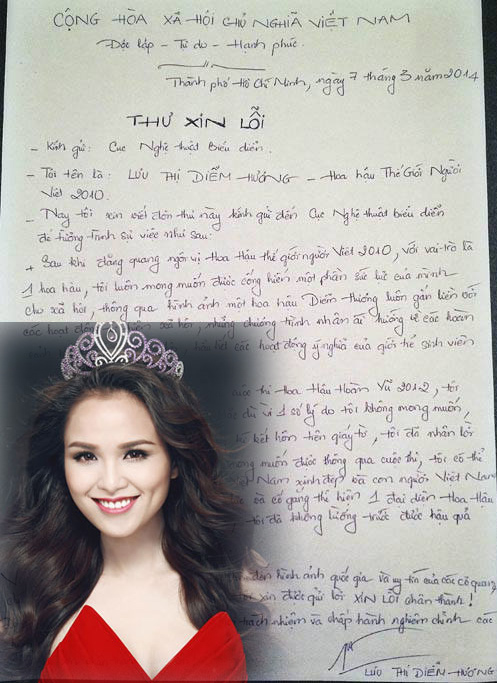 CỘNG HÒA XÃ HỘI CHỦ NGHĨA VIỆT NAM
Độc lập - Tự do - Hạnh phúc.
Thành phố Hồ Chí Minh, ngày 7 tháng 3 năm 2014
THƯ XIN LỖI
- Kính gửi: Cục Nghệ thuật Biểu diễn.
- Tôi tên là: LƯU THỊ DIỄM HƯƠNG - Hoa hậu Thế Giới Người
Việt 2010.
- Nay tôi xin viết đơn thư này kính gửi đến Cục Nghệ thuật biểu diễn
để tường trình sự việc như sau:
+ Sau khi đăng quang ngôi vị Hoa Hậu thế giới người Việt 2010, với vai trò là
1 hoa hậu, tôi luôn mong muốn được cống hiến một phần sức lực của mình
cho xã hội, thông qua hình ảnh một hoa hậu Diễm Hương luôn gắn liền với
các hoạt động xã hội, những chương trình nhân ái hướng về các hoàn
các hoạt động ý nghĩa của giới trẻ sinh viên
cuộc thi Hoa Hậu Hoàn Vũ 2012, tôi
dù vì 1 số lý do tôi không mong muốn,
kết hôn trên giấy tờ, tôi đã nhận lời
mong muốn được thông qua cuộc thi, tôi có thể
Nam xinh đẹp và con người Việt Nam
và cố gắng thể hiện 1 đại diện Hoa Hậu
tôi đã không lường trước được hậu quả
đến hình ảnh quốc gia và uy tín của các cơ quan,
xin được gửi lời XIN LỖI chân thành!
trách nhiệm và chấp hành nghiêm chỉnh các
LƯU THỊ DIỄM HƯƠNG